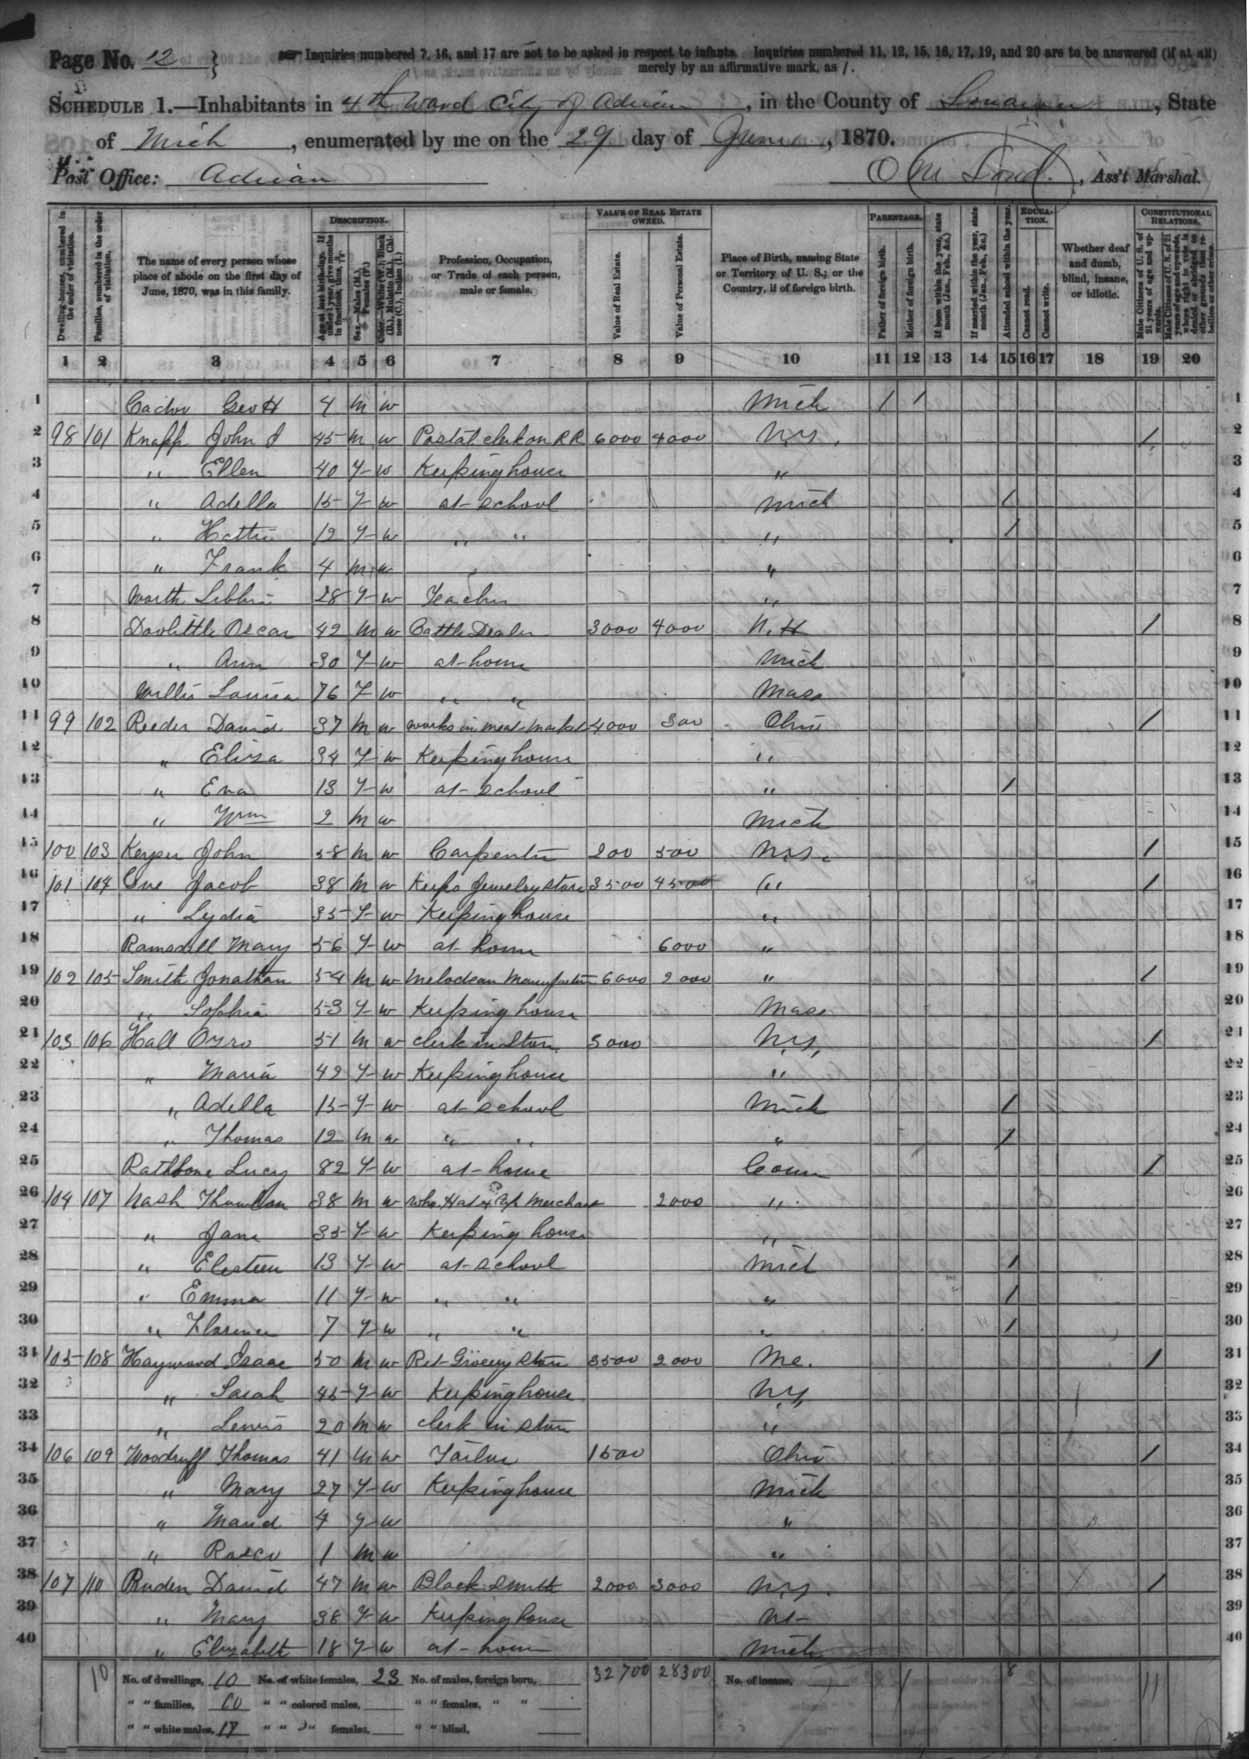 Page No. 12 } Inquiries numbered 7, 16, and 17 are not to be asked in respect to infants. Inquiries numbered 11, 12, 15, 16, 17, 19, and 20 are to be answered (if at all)
merely by an affirmative mark, as /.
SCHEDULE 1.—Inhabitants in 4th Ward City of Adrian, in the County of Lenawee, State
of Mich, enumerated by me on the 29 day of June, 1870.
Post Office: Adrian , Ass't Marshal.
Dwelling-houses, numbered in the order of visitation.
Families, numbered in the order of visitation.
The name of every person whose place of abode on the first day of June, 1870, was in this family.
DESCRIPTION.
Profession, Occupation, or Trade of each person, male or female.
VALUE OF REAL ESTATE OWNED.
Value of Real Estate.
Value of Personal Estate.
Place of Birth, naming State or Territory of U. S.; or the Country, if of foreign birth.
PARENTAGE.
Father of foreign birth.
Mother of foreign birth.
If born within the year, state month (Jan., Feb., &c.)
If married within the year, state month (Jan., Feb., &c.)
Attended school within the year.
EDUCATION.
Cannot read.
Cannot write.
Whether deaf and dumb, blind, insane, or idiotic.
CONSTITUTIONAL RELATIONS.
1 2 3 4 5 6 7 8 9 10 11 12 13 14 15 16 17 18 19 20
1 Geo H 4 M W Mich / / 1
2 98 101 Knapp John 45 M W Postal clerk on RR 6000 4000 N.Y. / 2
3 " Ellen 40 F W Keeping house " 3
4 " Adella 15 F W at school Mich / 4
5 " Hattie 12 F W " " " / 5
6 " Frank 4 M W " 6
7 Worth Libbie 28 F W Teacher " 7
8 Doolittle Oscar 42 M W Cattle Dealer 3000 4000 N.H / 8
9 " Ann 30 F W at home Mich 9
10 Willis Louisa 76 F W " " Mass 10
11 99 102 Reeder David 37 M W works in meat market 4000 300 Ohio / 11
12 " Eliza 34 F W Keeping house " 12
13 " Eva 13 F W at school " / 13
14 " Wm 2 M W Mich 14
15 100 103 Keyser John 58 M W Carpenter 200 500 N.Y. / 15
16 101 104 Jacob 38 M W Keeps Jewelry store 3500 4500 " / 16
17 " Lydia 35 F W Keeping house " 17
18 Ramsdell Mary 56 F W at home 6000 " 18
19 102 105 Smith Jonathan 54 M W Melodean 6000 2000 " / 19
20 " Sophia 53 F W Keeping house Mass 20
21 103 106 Hall Ozro 51 M W clerk in store 5000 N.Y. / 21
22 " Maria 49 F W Keeping house " 22
23 " Adella 15 F W at school Mich / 23
24 " Thomas 12 M W " " " / 24
25 Rathbone Lucy 82 F W at home Conn / 25
26 104 107 Nash 38 M W Who. Hat 2000 " 26
27 " Jane 35 F W Keeping house " 27
28 " 13 F W at school Mich / 28
29 " Emma 11 F W " " " / 29
30 " Florence 7 F W " " " / 30
31 105 108 Hayward Isaac 50 M W Ret Grocery Store 3500 2000 Me. / 31
32 " Sarah 45 F W Keeping house N.Y. 32
33 " Lewis 20 M W clerk in store " 33
34 106 109 Woodruff Thomas 41 M W Tailor 1500 Ohio / 34
35 " Mary 27 F W Keeping house Mich 35
36 " Maud 4 F W " 36
37 " 1 M W " 37
38 107 110 Ruden David 47 M W Black Smith 2000 3000 N.Y. / 38
39 " Mary 38 F W Keeping house 39
40 " Elizabeth 18 F W at home Mich 40
10 No. of dwellings, 10 No. of white females, 23 No. of males, foreign born, 32700 28300 No. of insane, 1 8 11
" " families, 10 " " colored males, " " females, " "
" " white males, 17 " " " females, " " blind,